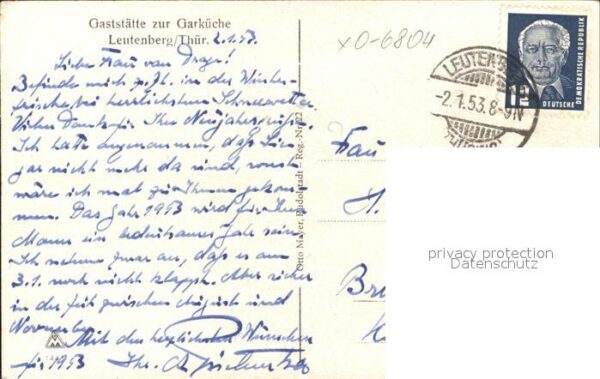 Gaststätte zur Garküche
Leutenberg/Thür. 2.1.53.
Liebe Frau van Drage!
Befinde mich z. Zt. in der Winter-
frische bei herrlichstem Schneewetter
Vielen Dank für Ihre Neujahrsgrüße.
Ich hatte angenommen, daß Sie
gar nicht mehr da sind, sonst
wäre ich mal zu Ihnen gekom-
men. Das Jahr 1953 wird für Ihren
Mann ein Jahr sein
Ich nehme zwar an, daß es am
3.1. noch nicht klappt. Aber sicher
in der Zeit zwischen August und
November
Mit den herzlichsten Wünschen
für 1953 Ihr
Otto Mayer, Rudolstadt - Reg.-Nr. 22
x0-6804
LEUTENB
-2.1.53.8-9N
(THÜRING)
DEUTSCHE DEMOKRATISCHE REPUBLIK
Frau
privacy protection
Datenschutz